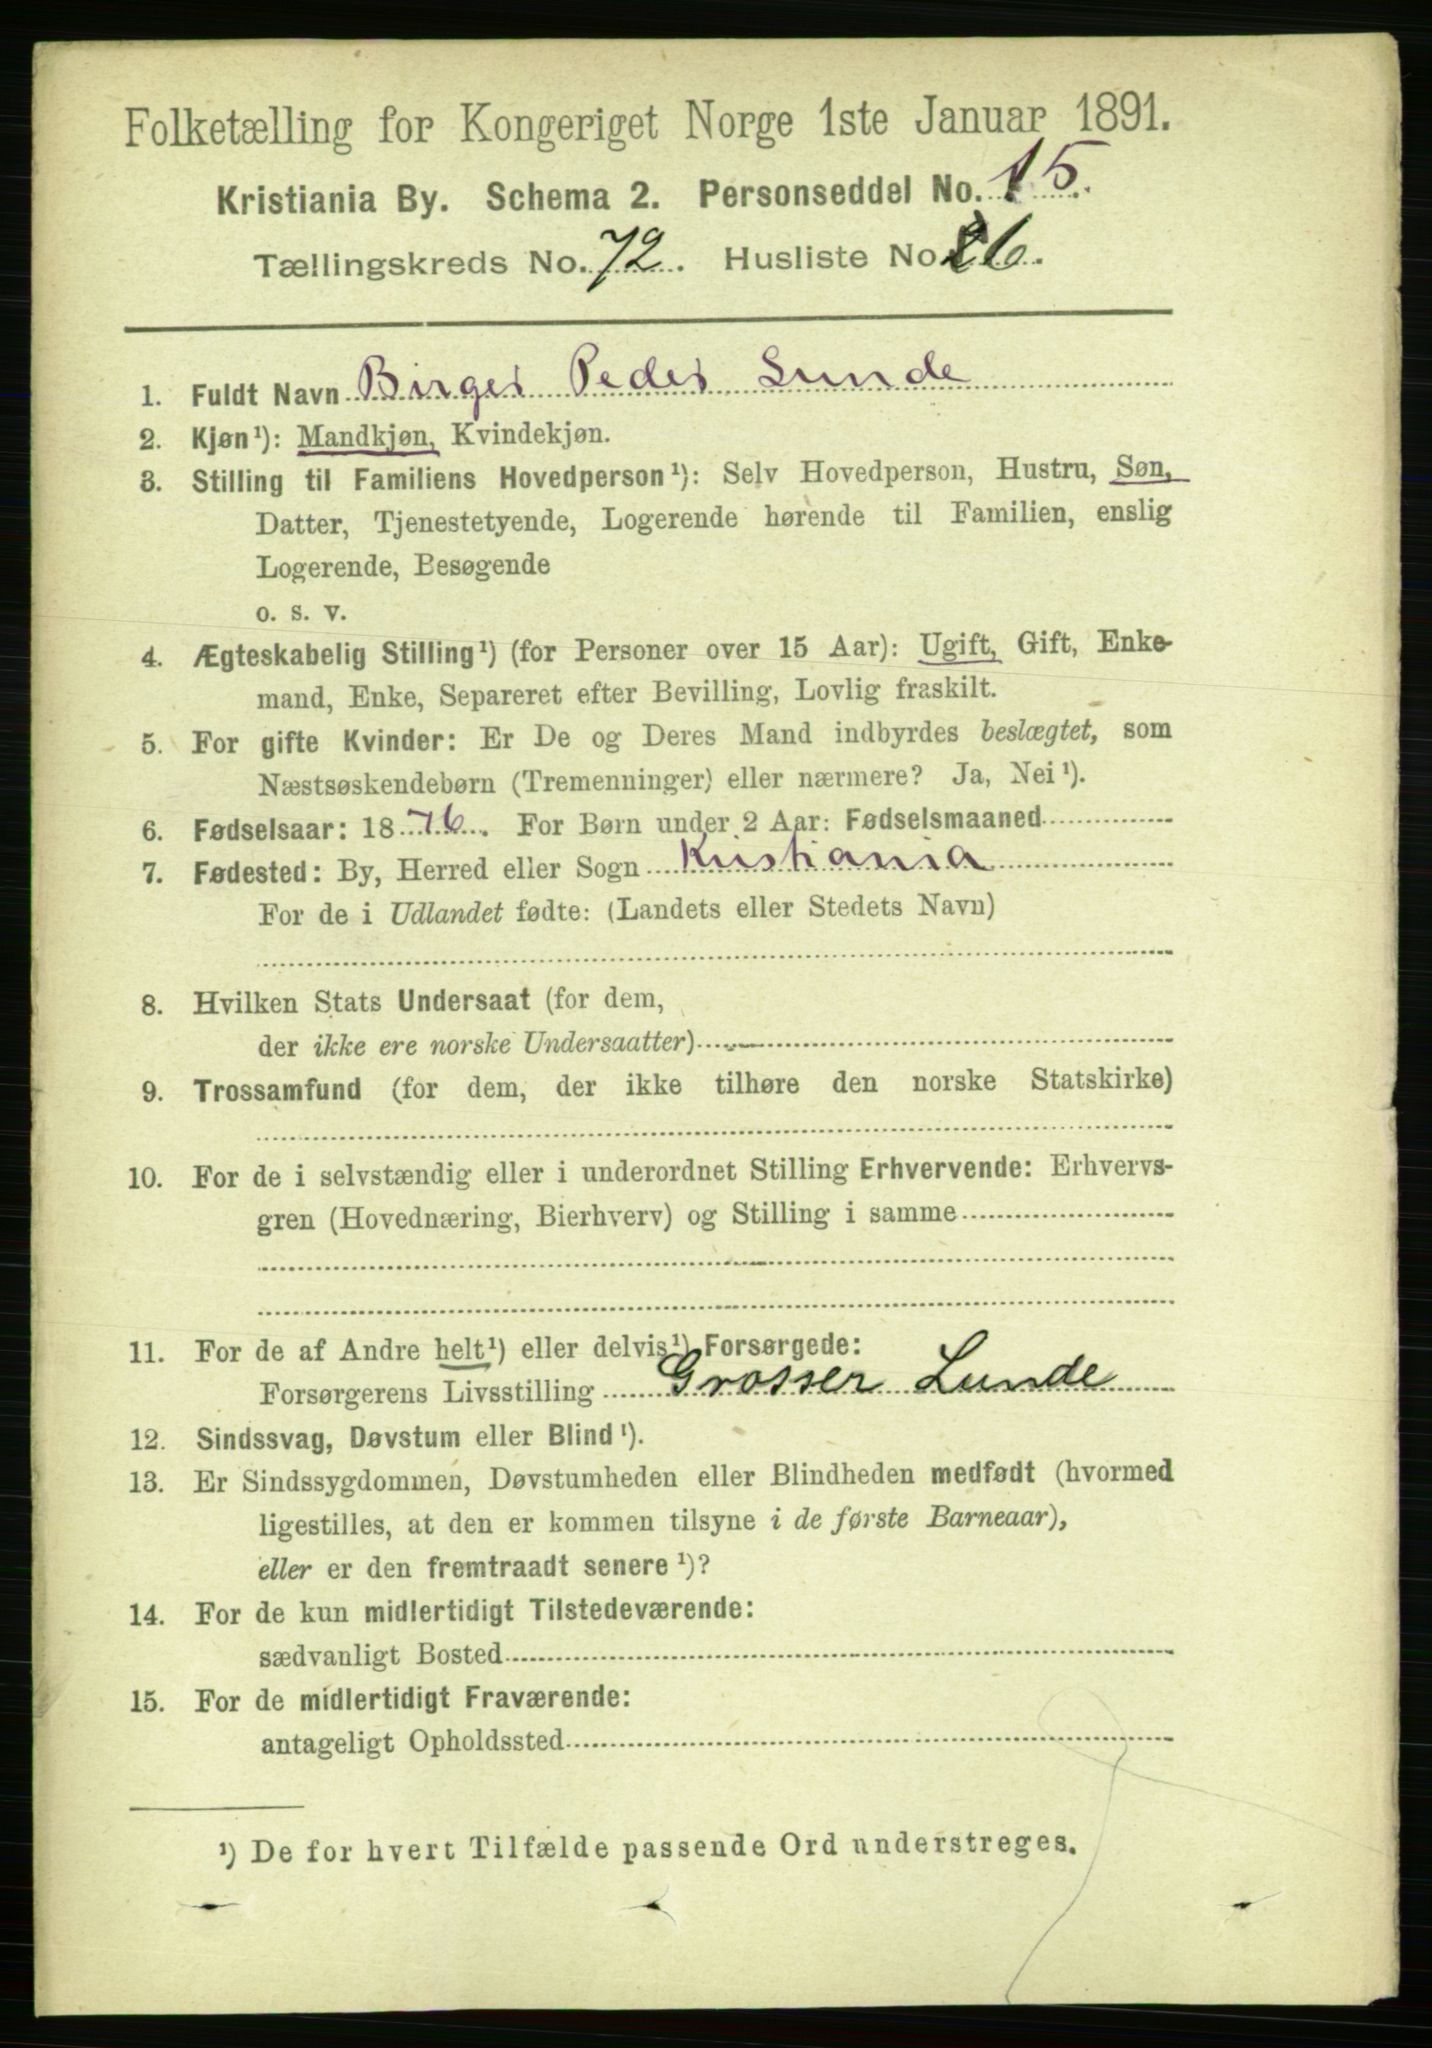 Folketælling for Kongeriget Norge 1ste Januar 1891.
Kristiania By. Schema 2. Personseddel No. 15.
Tællingskreds No. 72. Husliste No. 6.
1. Fuldt Navn Birger Peder Lunde
2. Kjøn¹): Mandkjøn, Kvindekjøn.
3. Stilling til Familiens Hovedperson¹): Selv Hovedperson, Hustru, Søn,
Datter, Tjenestetyende, Logerende hørende til Familien, enslig
Logerende, Besøgende
o. s. v.
4. Ægteskabelig Stilling¹) (for Personer over 15 Aar): Ugift, Gift, Enke-
mand, Enke, Separeret efter Bevilling, Lovlig fraskilt.
5. For gifte Kvinder: Er De og Deres Mand indbyrdes beslægtet, som
Næstsøskendebørn (Tremenninger) eller nærmere? Ja, Nei¹).
6. Fødselsaar: 1876. For Børn under 2 Aar: Fødselsmaaned
7. Fødested: By, Herred eller Sogn Kristiania
For de i Udlandet fødte: (Landets eller Stedets Navn)
8. Hvilken Stats Undersaat (for dem,
der ikke ere norske Undersaatter)
9. Trossamfund (for dem, der ikke tilhøre den norske Statskirke)
10. For de i selvstændig eller i underordnet Stilling Erhvervende: Erhvervs-
gren (Hovednæring, Bierhverv) og Stilling i samme
11. For de af Andre helt¹) eller delvis¹) Forsørgede:
Forsørgerens Livsstilling Grosser Lunde
12. Sindssvag, Døvstum eller Blind¹).
13. Er Sindssygdommen, Døvstumheden eller Blindheden medfødt (hvormed
ligestilles, at den er kommen tilsyne i de første Barneaar),
eller er den fremtraadt senere¹)?
14. For de kun midlertidigt Tilstedeværende:
sædvanligt Bosted
15. For de midlertidigt Fraværende:
antageligt Opholdssted
¹) De for hvert Tilfælde passende Ord understreges.